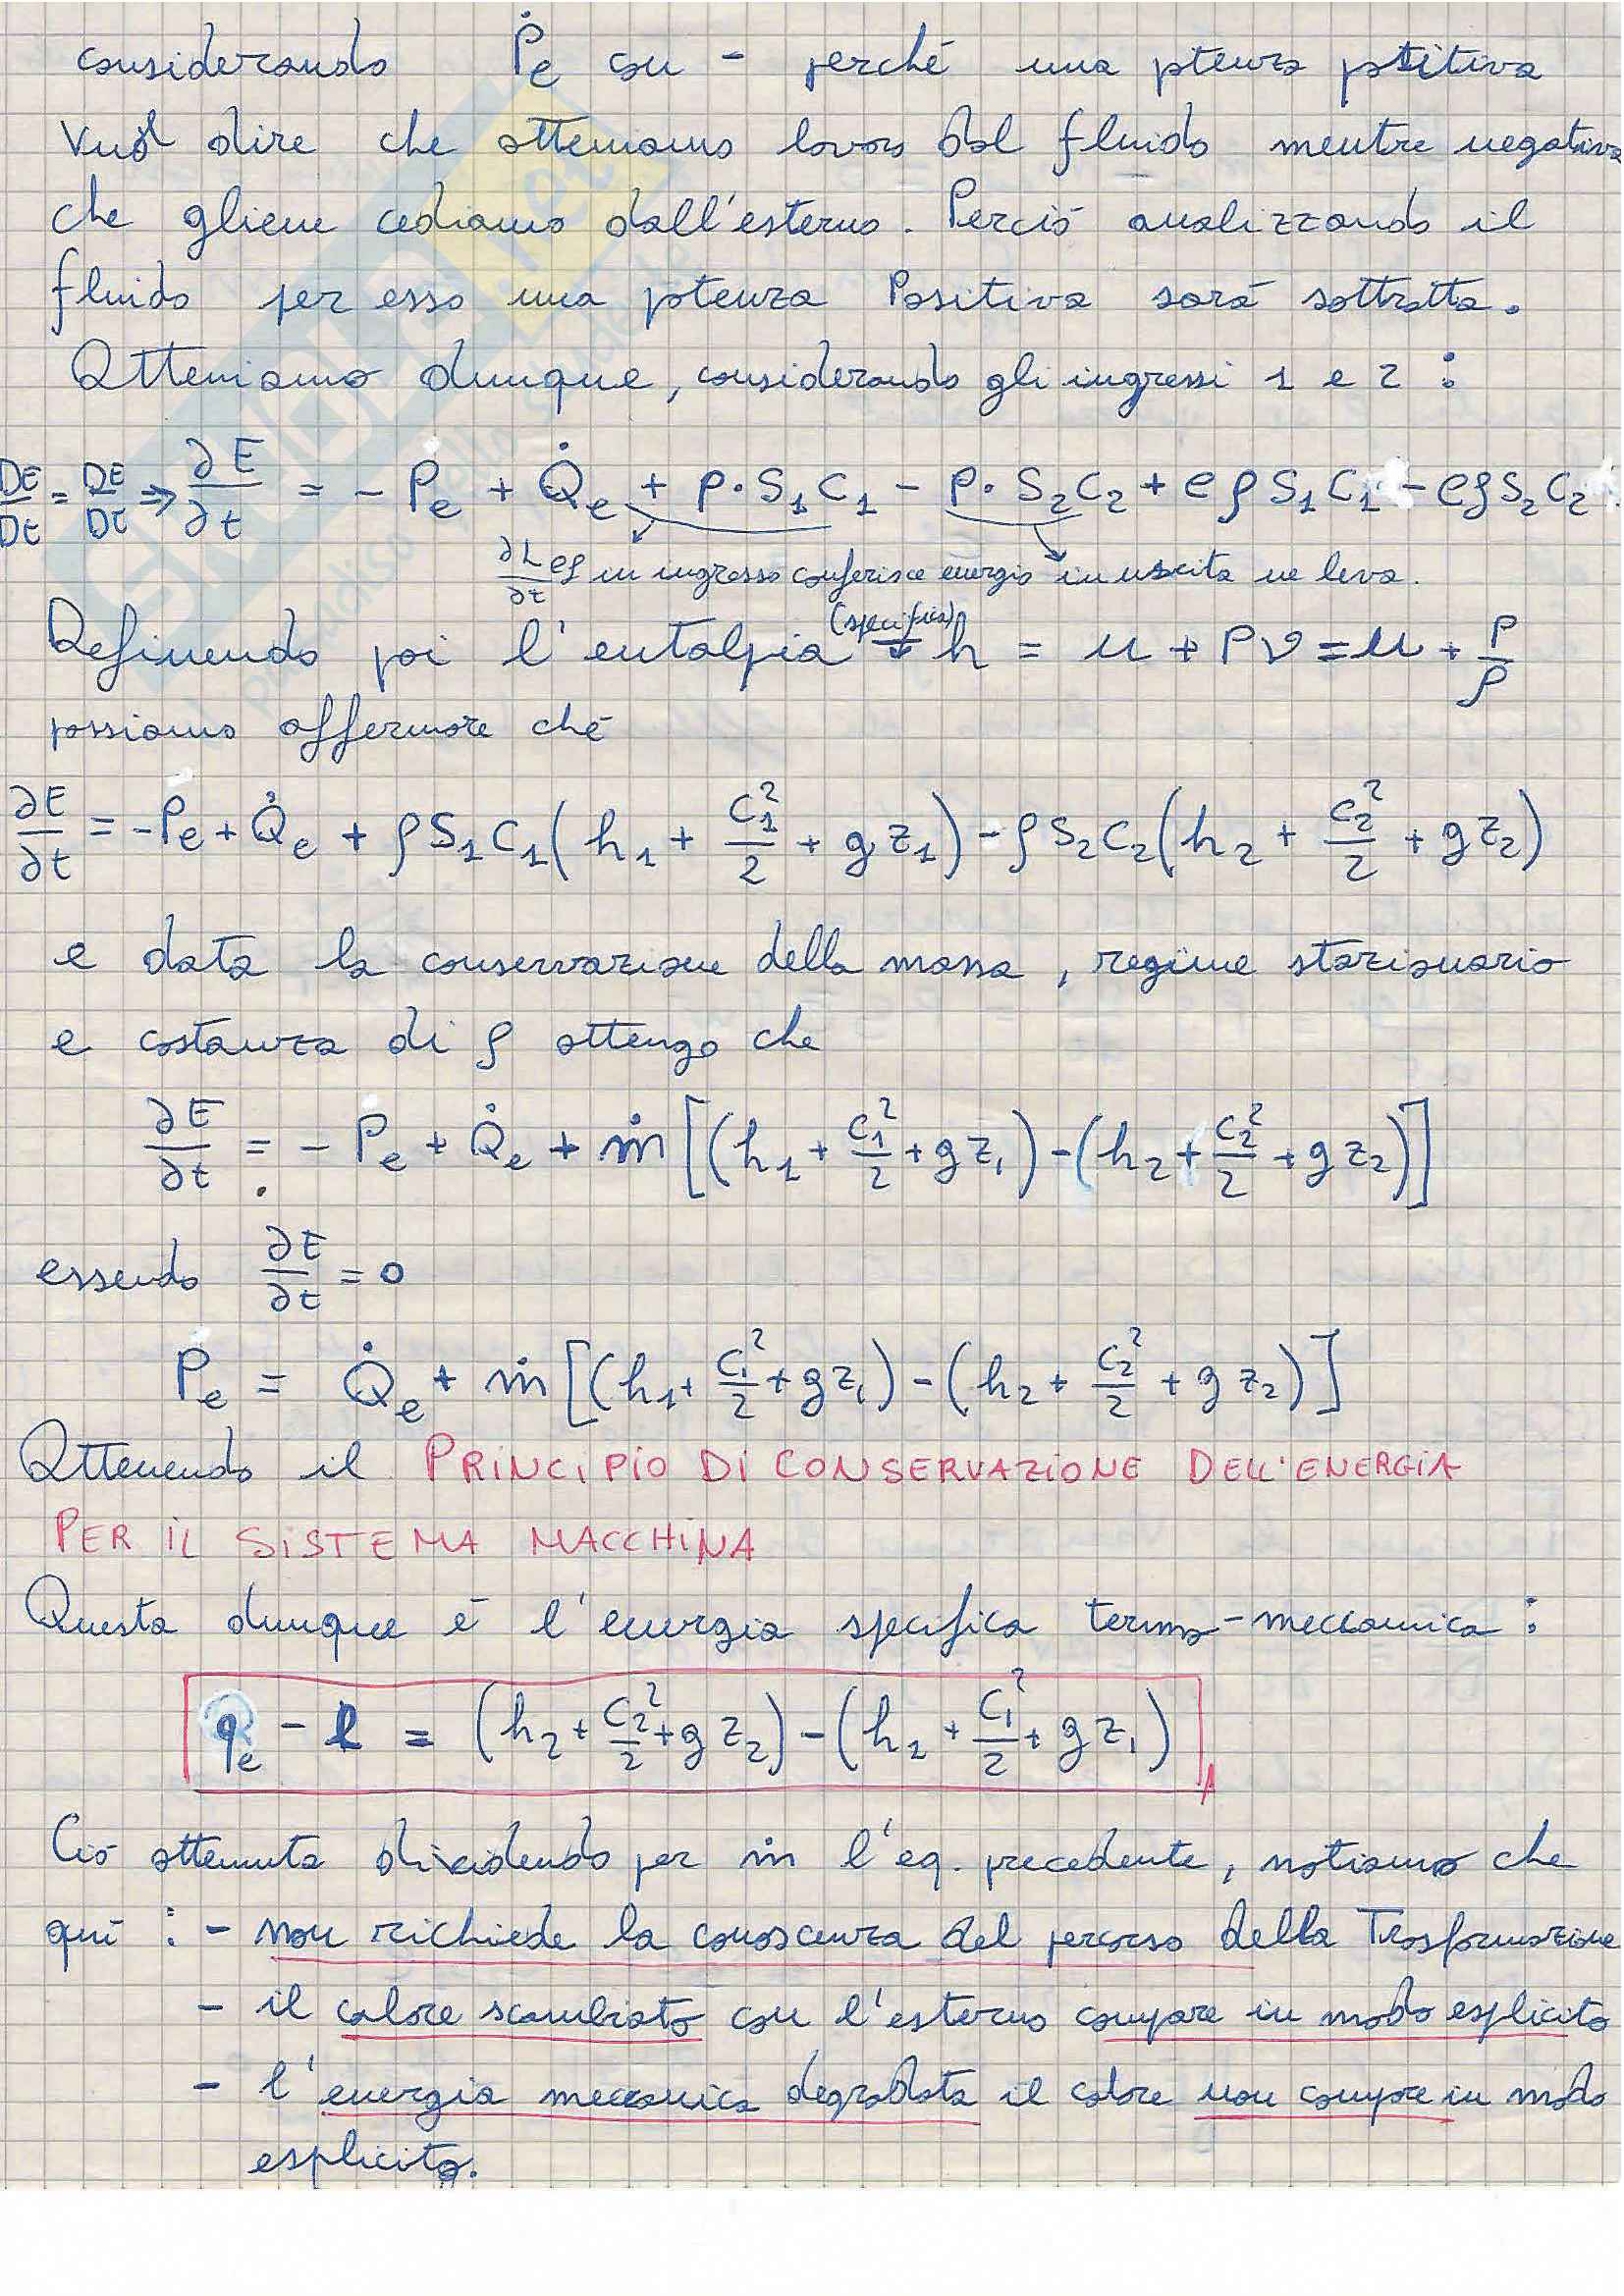 considerando Ṗe con - perché una ptenza potitiva
Vuol dire che otteniamo lavoro dal fluido mentre negativa
che gliene cediamo dall'esterno. Perciò analizzando il
fluido per esso una potenza Positiva sarà sottratta.
Otteniamo dunque, considerando gli ingressi 1 e 2 :
DE/Dt = DE/Dt ⇒ ∂E/∂t = - Pe + Q̇e + p·S₁C₁ - p·S₂C₂ + eρS₁C₁ - eρS₂C₂
∂L/∂t in ingresso conferisce energia in uscita ne leva.
Definendo poi l'entalpia (specifica) → h = u + Pv = u + P/ρ
possiamo affermare che
∂E/∂t = -Pe + Q̇e + ρS₁C₁(h₁ + C₁²/2 + gz₁) - ρS₂C₂(h₂ + C₂²/2 + gz₂)
e data la conservazione della massa, regime stazionario
e costanza di ρ ottengo che
∂E/∂t = - Pe + Q̇e + ṁ[(h₁ + C₁²/2 + gz₁) - (h₂ + C₂²/2 + gz₂)]
essendo ∂E/∂t = 0
Pe = Q̇e + ṁ[(h₁ + C₁²/2 + gz₁) - (h₂ + C₂²/2 + gz₂)]
Ottenendo il PRINCIPIO DI CONSERVAZIONE DELL'ENERGIA
PER IL SISTEMA MACCHINA
Questa dunque è l'energia specifica termo-meccanica :
qe - l = (h₂ + C₂²/2 + gz₂) - (h₁ + C₁²/2 + gz₁)
Ciò ottenuta dividendo per ṁ l'eq. precedente, notiamo che
qui : - non richiede la conoscenza del percorso della Trasformazione
- il calore scambiato con l'esterno compare in modo esplicito
- l'energia meccanica degradata il calore non compare in modo
esplicito.